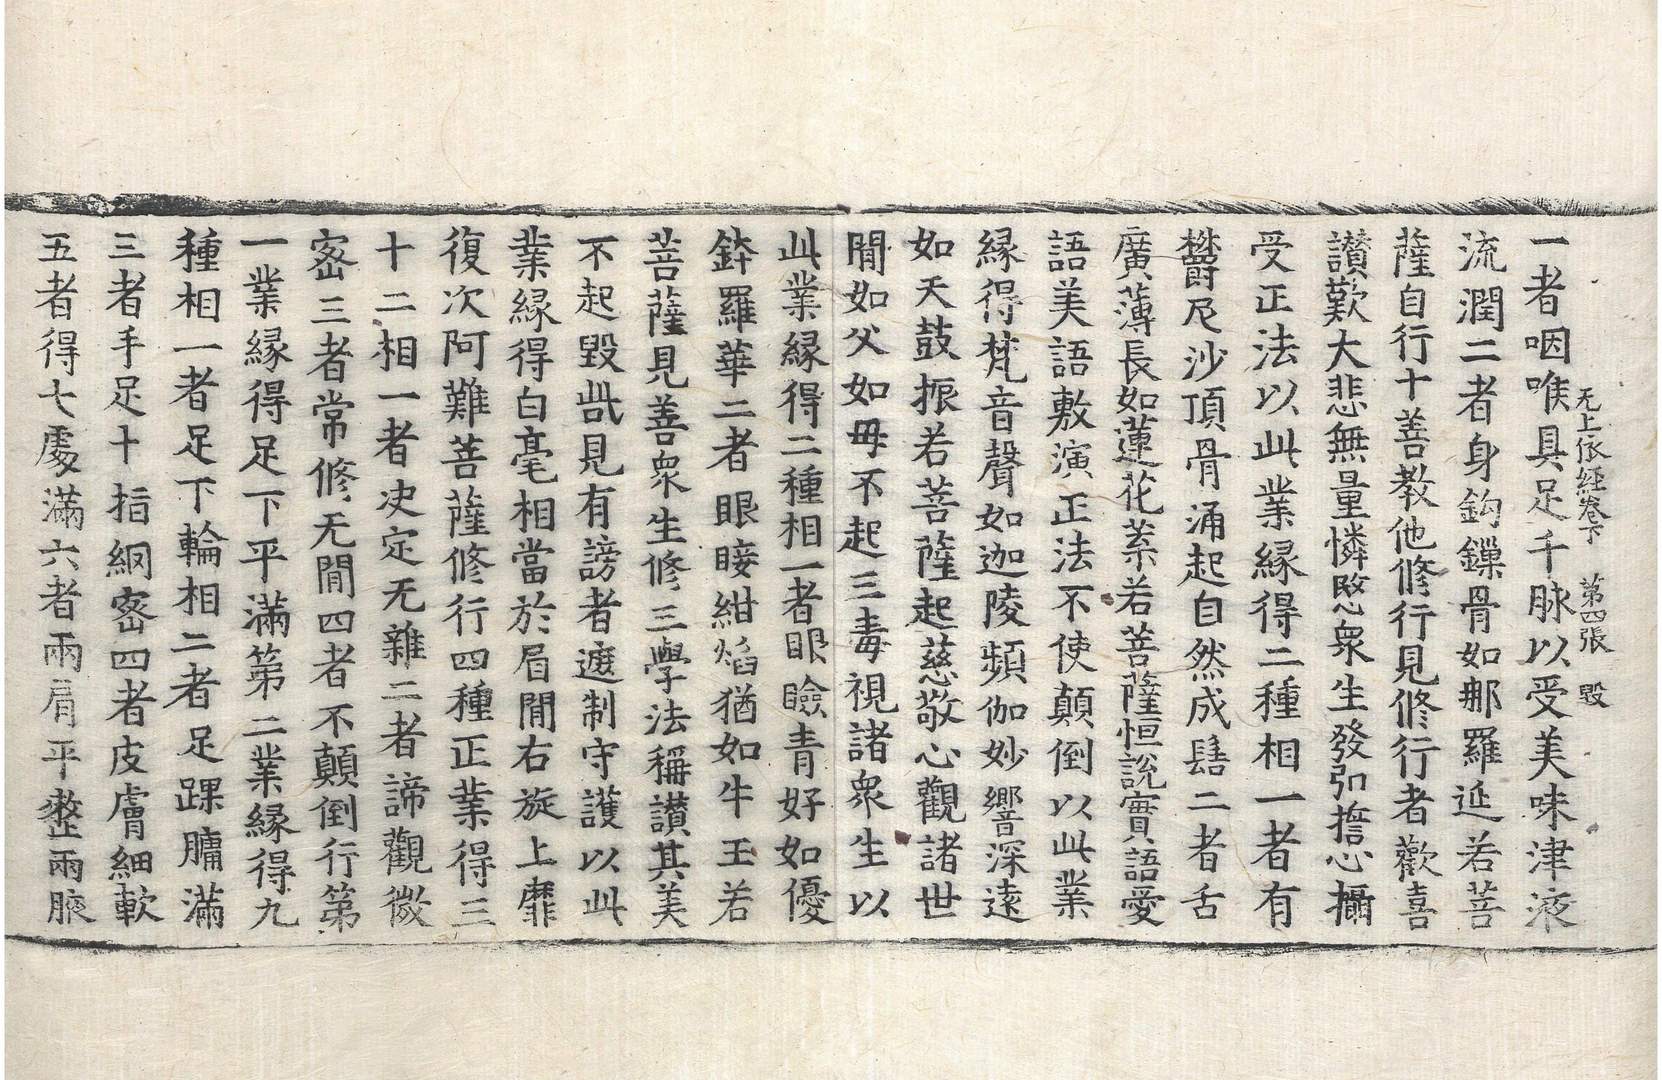 无上依經卷下 第四張 毁
一者咽喉具足千脉以受美味津液
流潤二者身鈎鏁骨如那羅延若菩
薩自行十善教他修行見修行者歡喜
讃歎大悲無量憐愍衆生發弘擔心攝
受正法以此業縁得二種相一者有
欝尼沙頂骨涌起自然成髻二者舌
廣薄長如蓮花葉若菩薩恒說實語愛
語美語敷演正法不使顛倒以此業
縁得梵音聲如迦陵頻伽妙響深遠
如天鼓振若菩薩起慈敬心觀諸世
閒如父如母不起三毒視諸衆生以
此業縁得二種相一者眼瞼青好如優
鉢羅華二者眼睫紺焰猶如牛王若
菩薩見善衆生修三學法稱讃其美
不起毀呰見有謗者遮制守護以此
業縁得白毫相當於眉閒右旋上靡
復次阿難菩薩修行四種正業得三
十二相一者决定无雜二者諦觀微
宻三者常修无閒四者不顛倒行第
一業縁得足下平滿第二業縁得九
種相一者足下輪相二者足踝𦟛滿
三者手足十指網宻四者皮膚細軟
五者得七處滿六者兩肩平整兩腋